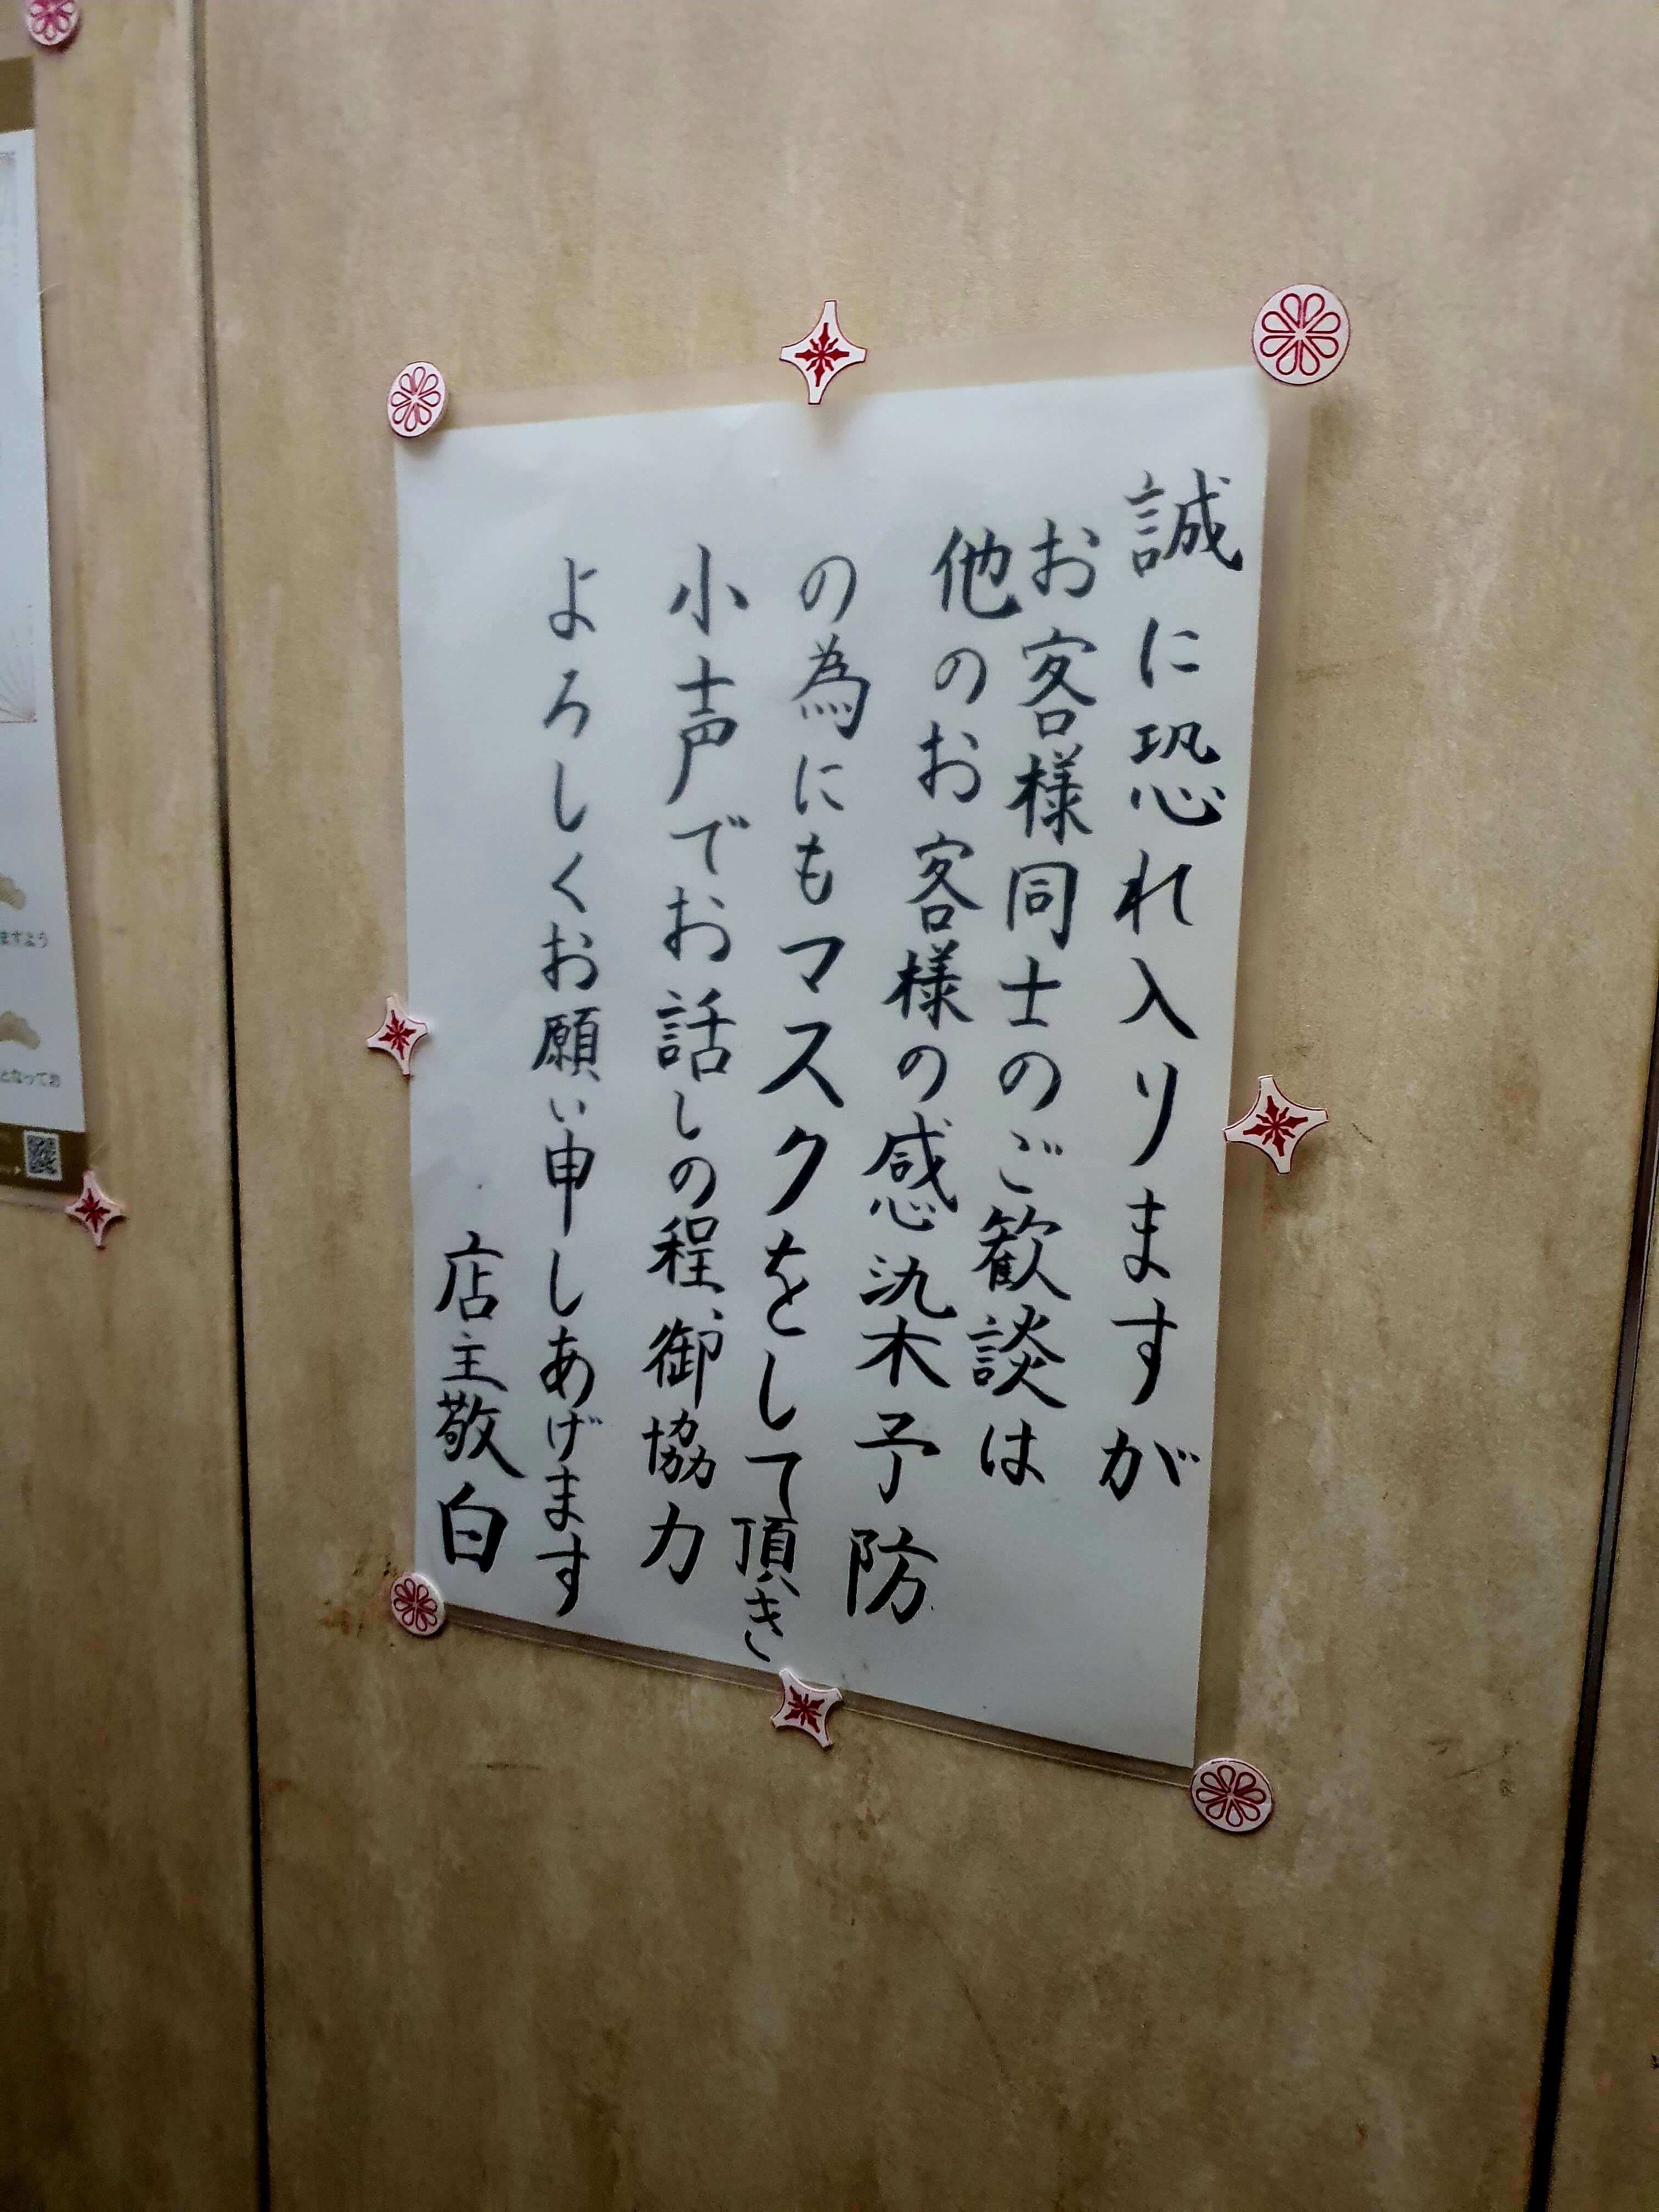 誠に恐れ入りますが
お客様同士のご歓談は
他のお客様の感染予防
の為にもマスクをして頂き
小声でお話しの程、御協力
よろしくお願い申しあげます
店主敬白
ますよう
となってお